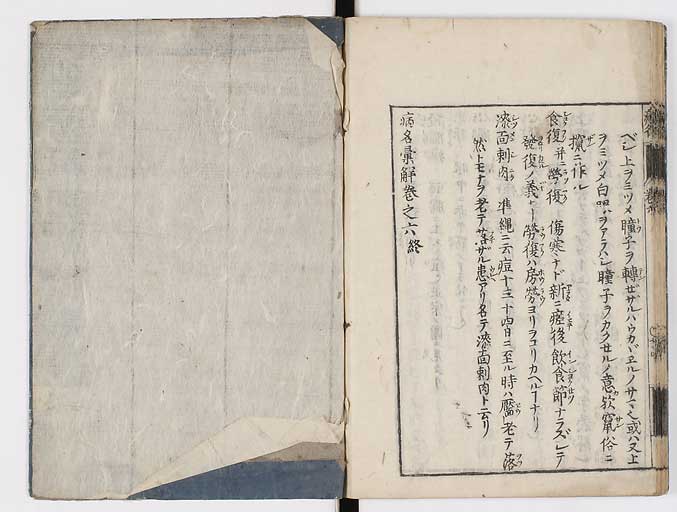 ベシ上ヲミツメ瞳子ヲ轉ゼザルハウカヾヱルノサマ也或ハ又上
ヲミツメ白眼ヲアラハシ瞳子ヲカクセルノ意欤竄俗ニ
攛ニ作ル
食復并ニ勞復 傷寒ナド新ニ瘥後飲食節ナラズシテ
發復ノ義ナリ勞復ハ房勞ヨリヲコリカヘルナリ
漆面刺肉 準縄ニ云痘十三十四日ニ至ル時ハ靨老テ落
然トモナヲ老テ落ザル患アリ名テ漆面刺肉ト云リ
病名彙解巻之六終